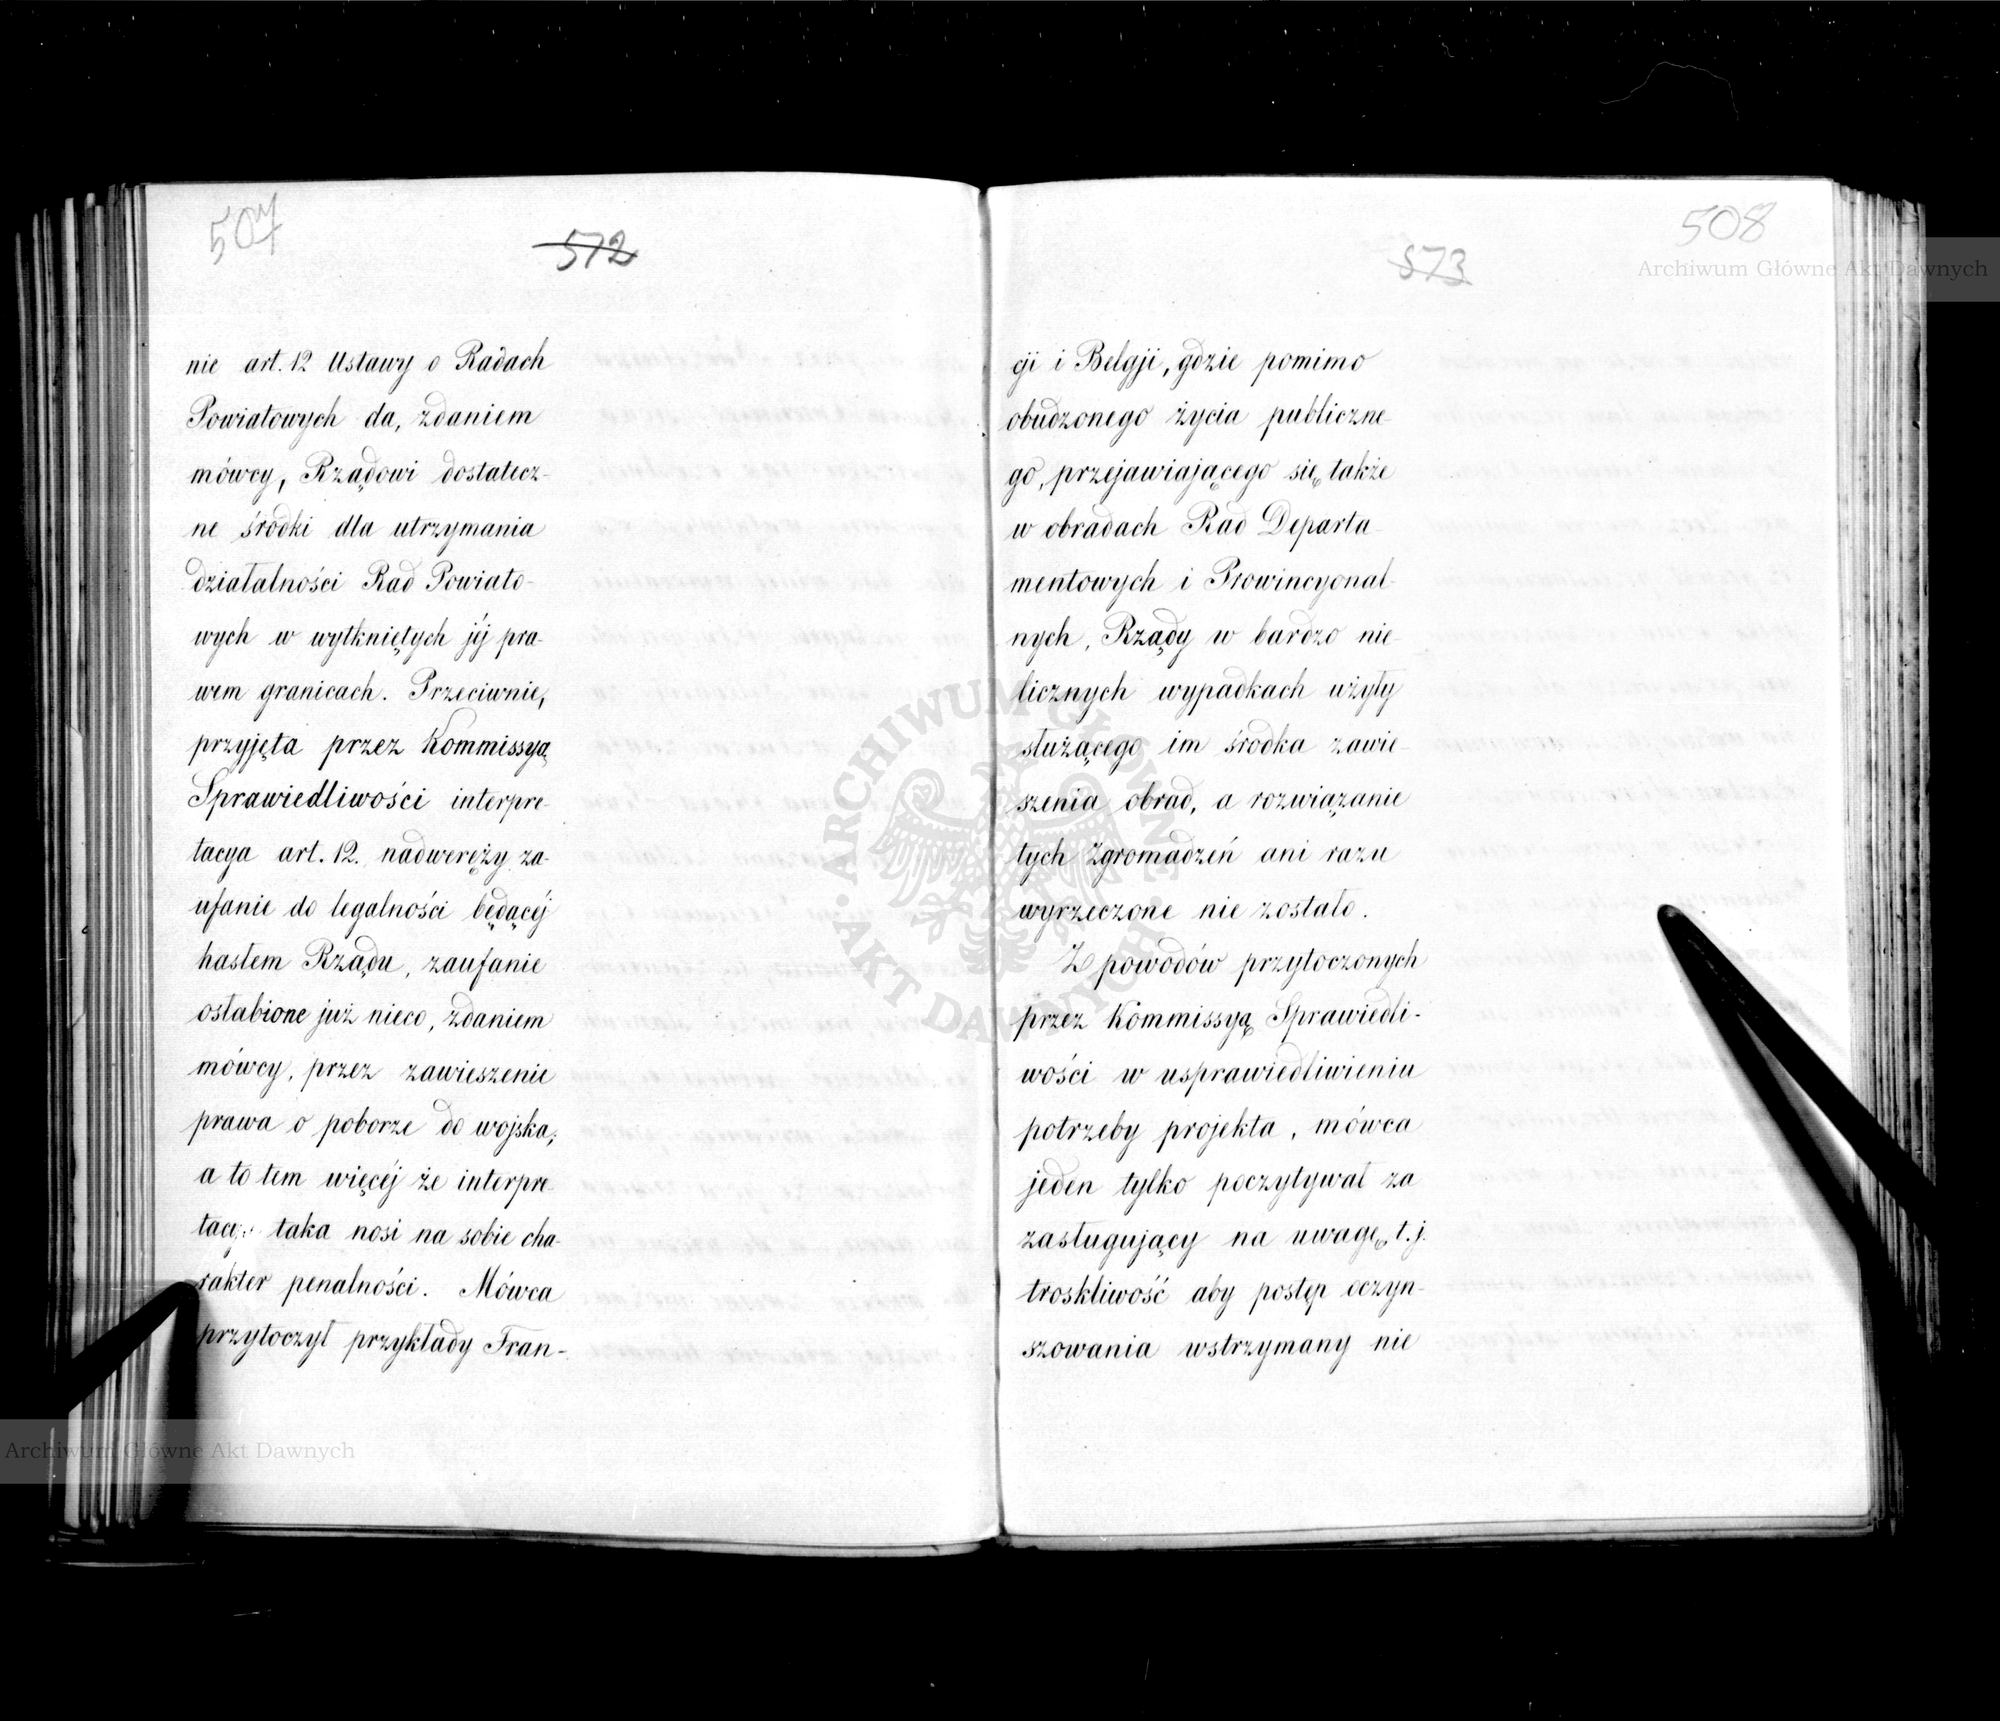 507
572
nie art. 12 Ustawy o Radach
Powiatowych da, zdaniem
mówcy, Rządowi dostatecz-
ne środki dla utrzymania
działalności Rad Powiato-
wych w wytkniętych jéj pra-
wem granicach. Przeciwnie,
przyjęta przez Kommissyą
Sprawiedliwości interpre-
tacya art. 12. nadweręży za-
ufanie do legalności będącéj
hasłem Rządu, zaufanie
osłabione już nieco, zdaniem
mówcy, przez zawieszenie
prawa o poborze do wojska,
a to tem więcéj że interpre-
tacy taka nosi na sobie cha-
rakter penalności. Mówca
przytoczył przykłady Fran-
508
573
cji i Belgji, gdzie pomimo
obudzonego życia publiczne-
go, przejawiającego się także
w obradach Rad Departa-
mentowych i Prowincyonal-
nych, Rządy w bardzo nie-
licznych wypadkach użyły
służącego im środka zawie-
szenia obrad, a rozwiązanie
tych Zgromadzeń ani razu
wyrzeczone nie zostało.
Z powodów przytoczonych
przez Kommissyą Sprawiedli-
wości w usprawiedliwieniu
potrzeby projekta, mówca
jeden tylko poczytywał za
zasługujący na uwagę, t.j.
troskliwość aby postęp oczyn-
szowania wstrzymany nie
Archiwum Główne Akt Dawnych
Archiwum Główne Akt Dawnych
ARCHIWUM GŁÓWNE
AKT DAWNYCH